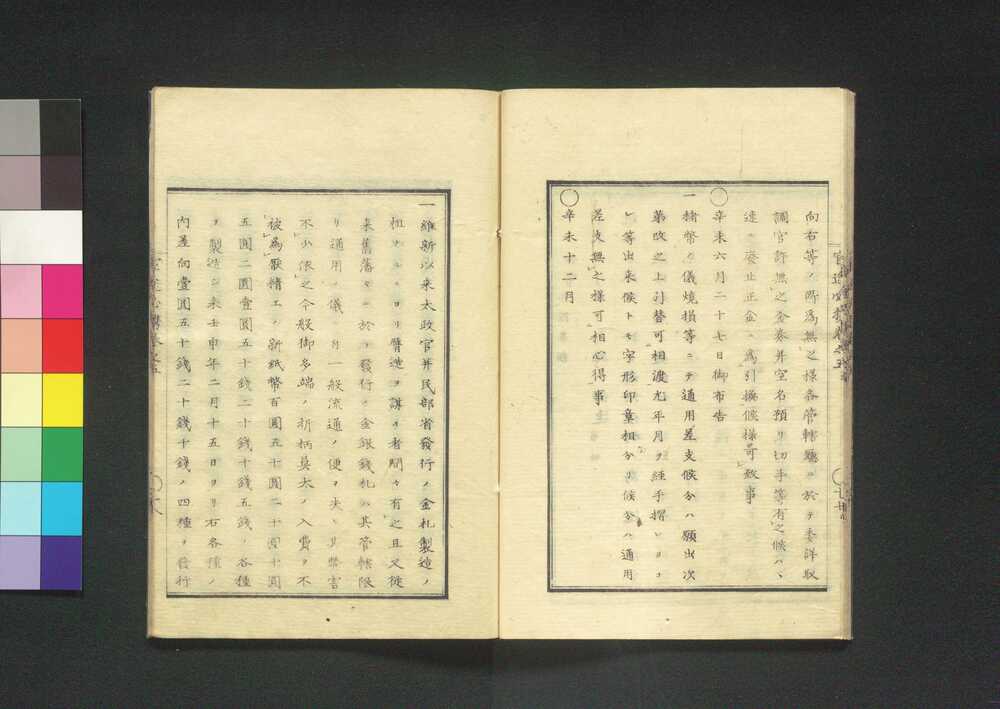 向右等ノ所為無之様各管轄廳ニ於テ委詳取
調官許無之金券并空名預リ切手等有之候ハヽ
速ニ廃止正金ニ為引換候様可致事
○辛未六月二十七日御布告
一楮幣ノ儀焼損等ニテ通用差支候分ハ願出次
第改之上引替可相渡尤年月ヲ経手摺レヨコ
レ等出来候トモ字形印章相分リ候分ハ通用
差支無之様可相心得事
○辛未十二月
一維新以来太政官并民部省發行ノ金札製造ノ
粗ナルヨリ贋造ヲ謀ル者間々有之且又従
来舊藩々ニ於テ發行ノ金銀錢札ハ其管轄限
リ通用ノ儀ニ付一般流通ノ便ヲ失ヒ其弊害
不少依之今般御多端ノ折柄莫大ノ入費ヲ不
被為厭精工ノ新紙幣百圓五十圓二十圓十圓
五圓二圓壹圓五十錢二十錢十錢五錢ノ各種
ヲ製造シ来壬申年二月十五日ヨリ右各種ノ
内差向壹圓五十錢二十錢十錢ノ四種ヲ發行